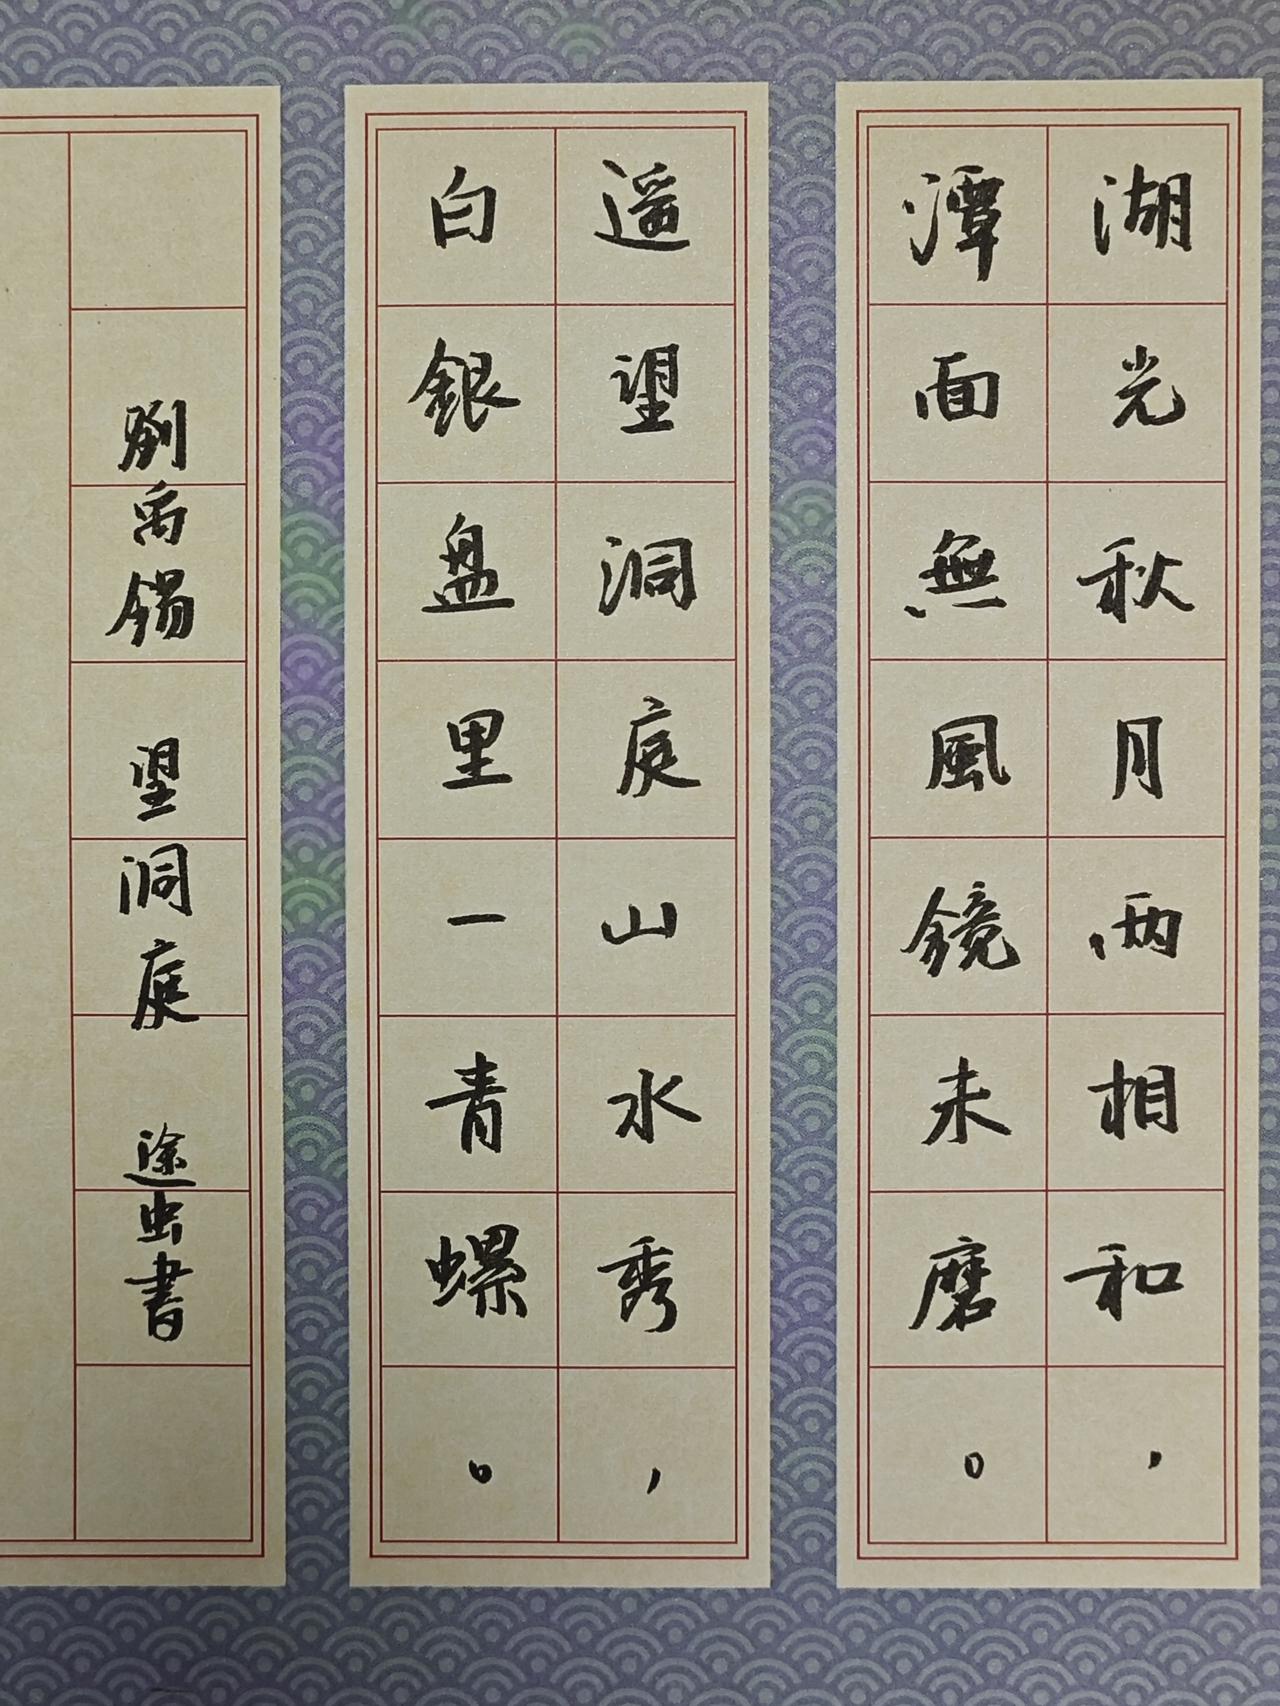 湖光秋月两相和，
潭面無風鏡未磨。
遥望洞庭山水秀，
白銀盘里一青螺。
劉禹錫 望洞庭 途虫書